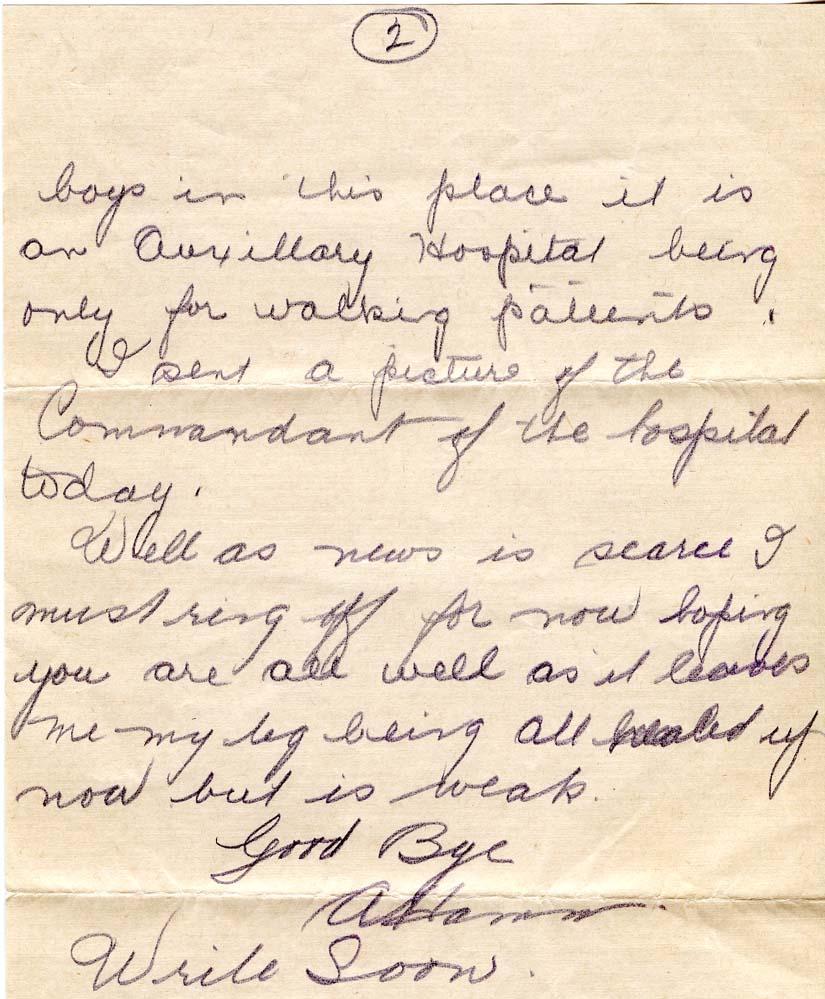 2
boys in this place it is
an Auxillary Hospital being
only for walking patients.
I sent a picture of the
Commandant of the hospital
today.
Well as news is scarce I
must ring off for now hoping
you are all well as it leaves
me my leg being all healed up
now but is weak.
Good Bye
Write Soon.